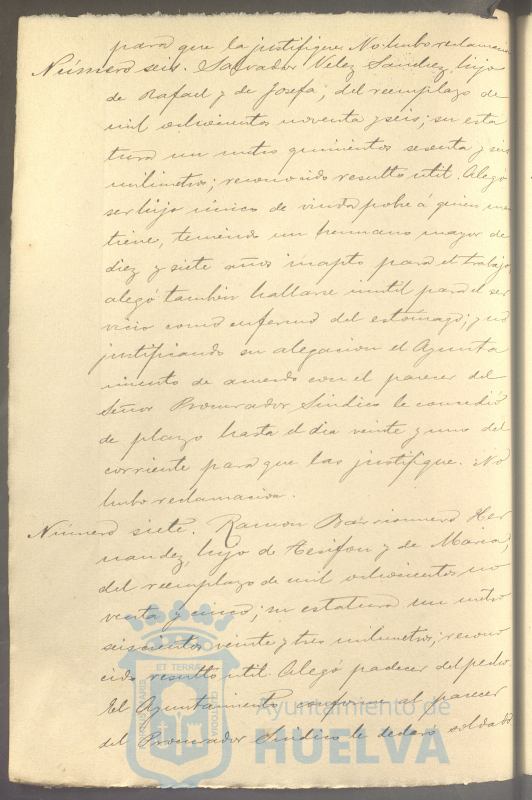 para que la justifique. No hubo reclamacion
Número seis. Salvador Velez Sanchez, hijo
de Rafael y de Josefa; del reemplazo de
mil ochocientos noventa y seis; su esta
tura un metro quinientos sesenta y seis
milimetros; reconocido resultó util. Alegó
ser hijo único de viuda pobre á quien man
tiene, teniendo un hermano mayor de
diez y siete años inapto para el trabajo,
alegó tambien hallarse inutil para el ser
vicio como enfermo del estomago; y no
justificando su alegacion el Ayunta
miento de acuerdo con el parecer del
Señor Procurador Sindico le concedió
de plazo hasta el dia veinte y uno del
corriente para que las justifique. No
hubo reclamacion.
Número siete. Ramon Barrionuevo Her
nandez, hijo de Tesifon y de Maria,
del reemplazo de mil ochocientos no
venta y cinco; su estatura un metro
seiscientos veinte y tres milimetros; recono
cido resultó util. Alegó padecer del pecho.
El Ayuntamiento conforme al parecer
del Procurador Sindico le declaró soldado
Ayuntamiento de
HUELVA
ET TERRAE
PORTUS MARIS
CUSTODIA